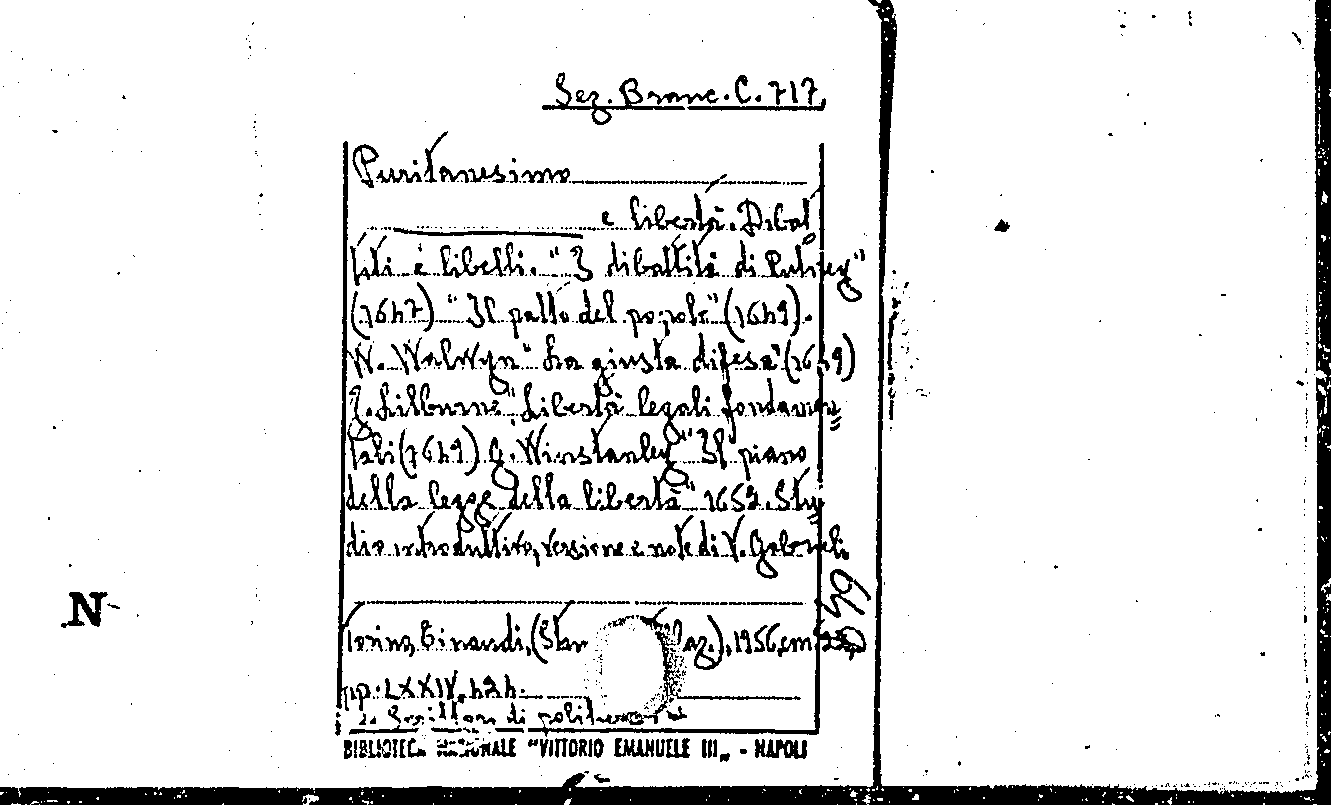 Sez. Branc. C. 717.
Puritanesimo
e libertà. Dibat
titi e libelli. "I dibattiti di Putney"
(1647) "Il patto del popolo" (1649).
W. Walwyn "La giusta difesa" (1649)
J. Lilburne "Libertà legali fondamen=
tali (1649) G. Winstanley "Il piano
della legge della libertà" 1652. Stu=
dio introduttivo, versione e note di V. Gabrieli.
Torino, Einaudi, (Star 1956, cm.
pp. LXXIV, 424.
di
BIBLIOTECA NAZIONALE "VITTORIO EMANUELE III„ - NAPOLI
N